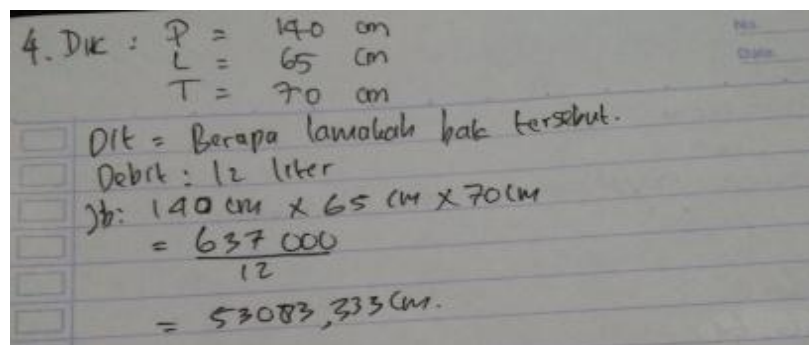 No.
Date
4. Dik : P = 140 cm
L = 65 cm
T = 70 cm
Dit = Berapa lamakah bak tersebut.
Debit : 12 liter
Jb: 140 cm x 65 cm x 70 cm
= 637 000
12
= 53083,333 cm.